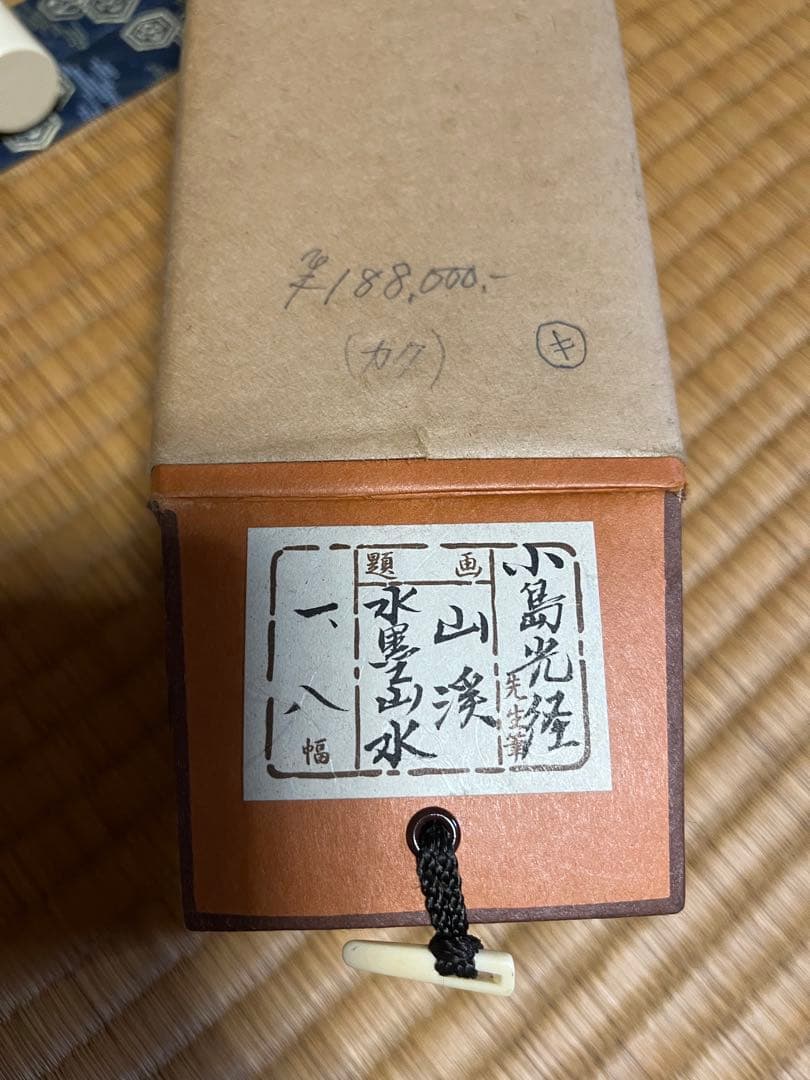 ¥188,000.-
(カク)
キ
小島光経
先生筆
画題
山溪
水墨山水
一、八
幅